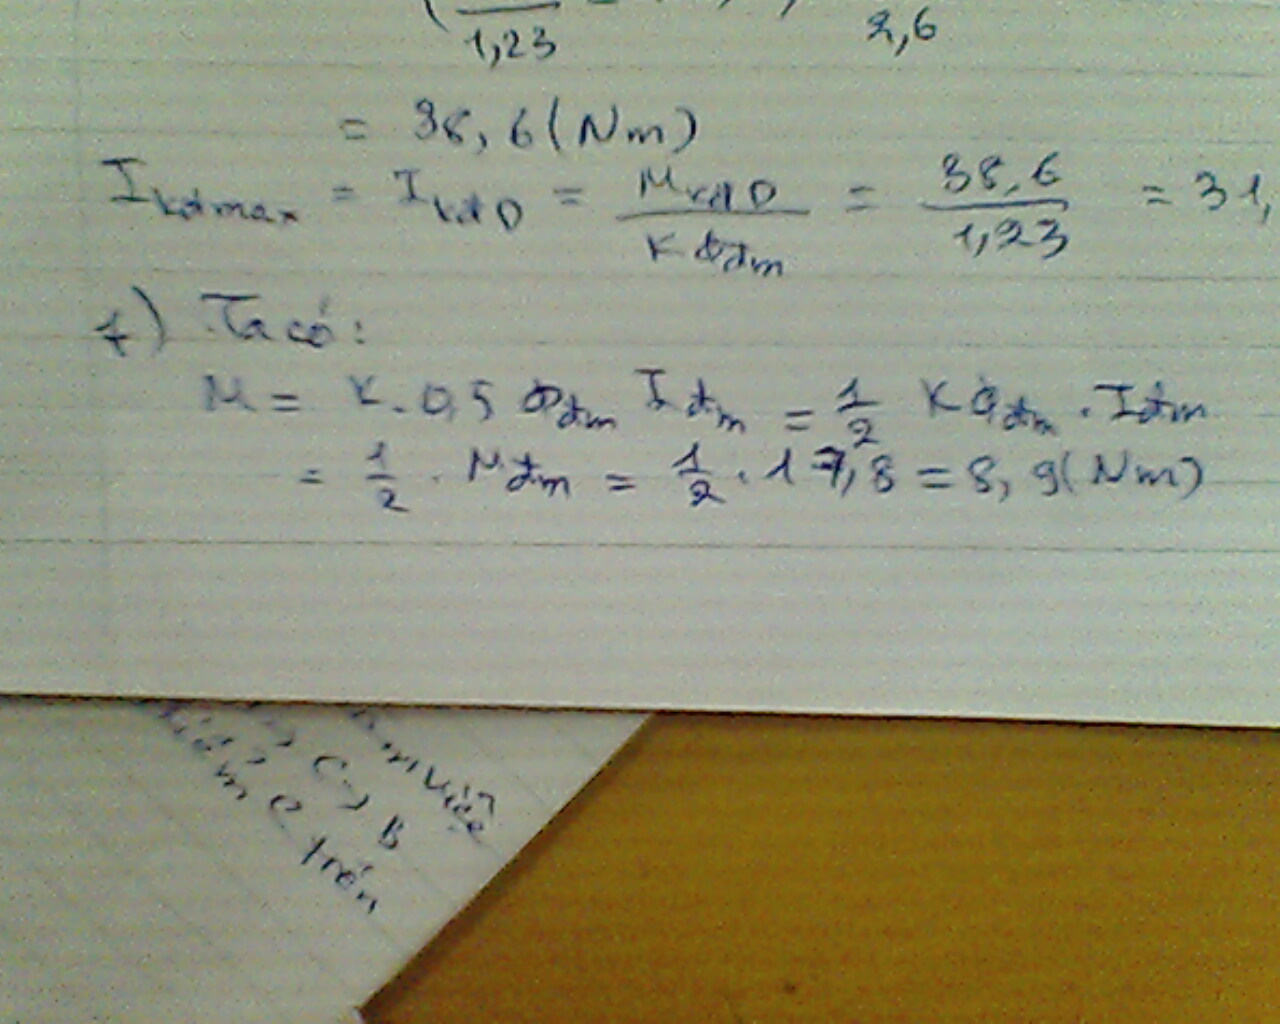 1,23 2,6
= 38,6 (Nm)
I kđmax = I kđ D = M kđ D / K Φđm = 38,6 / 1,23 = 31,
f) Ta có:
M = K . 0,5 Φđm Iđm = 1/2 K Φđm . Iđm
= 1/2 . Mđm = 1/2 . 17,8 = 8,9 (Nm)
C → B
e trên